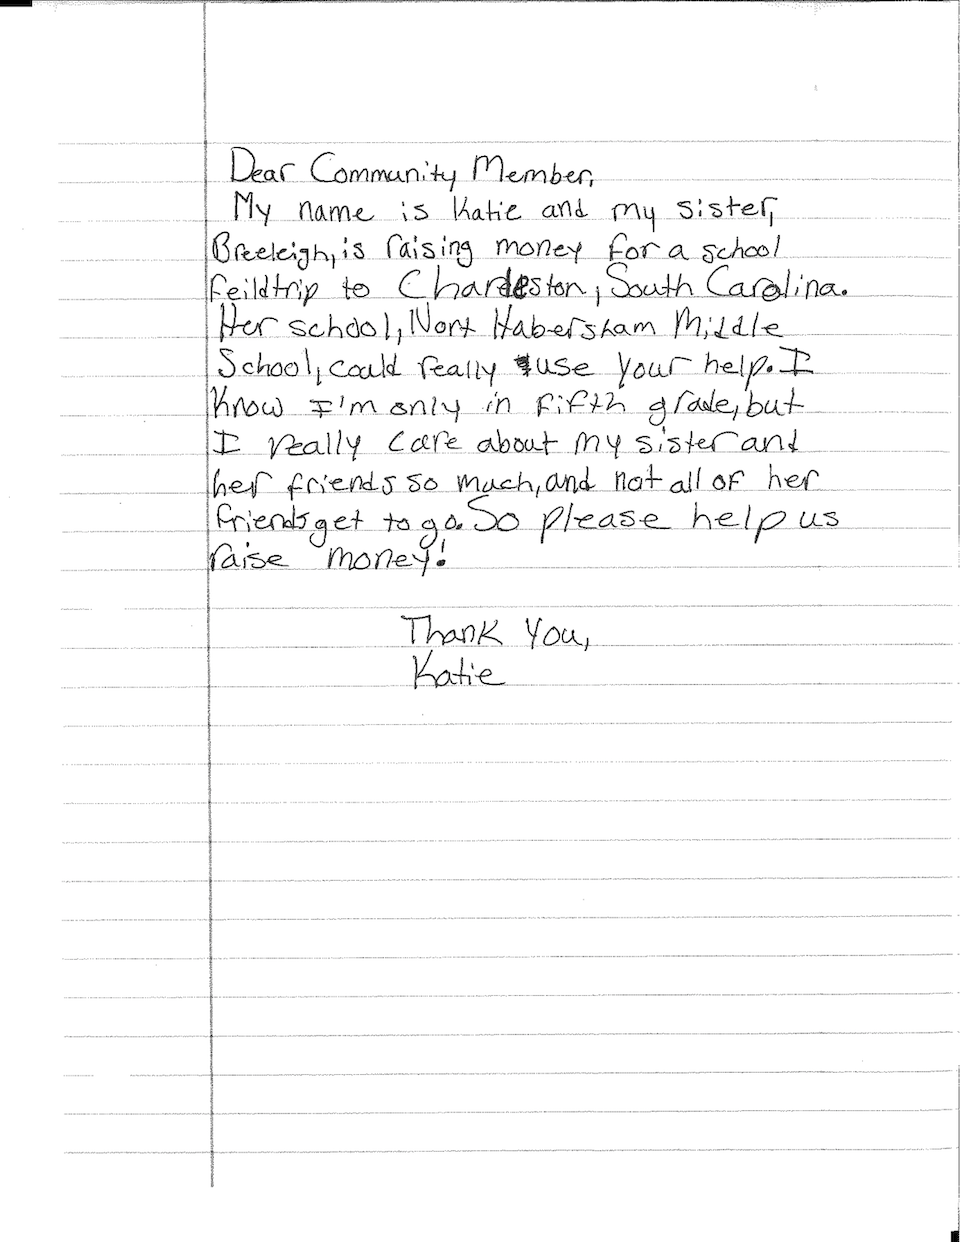 Dear Community Member,
My name is Katie and my sister,
Breeleigh, is raising money for a school
feildtrip to Chardeston, South Carolina.
Her school, Nort Habersham Middle
School, could really use your help. I
know I'm only in fifth grade, but
I really care about my sister and
her friends so much, and not all of her
friends get to go. So please help us
raise money!
Thank You,
Katie